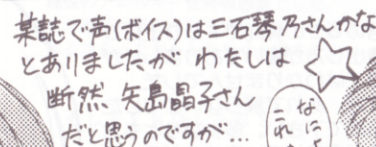 某誌で声(ボイス)は三石琴乃さんかな
とありましたが わたしは
断然 矢島晶子さん
だと思うのですが…
なによ
これ